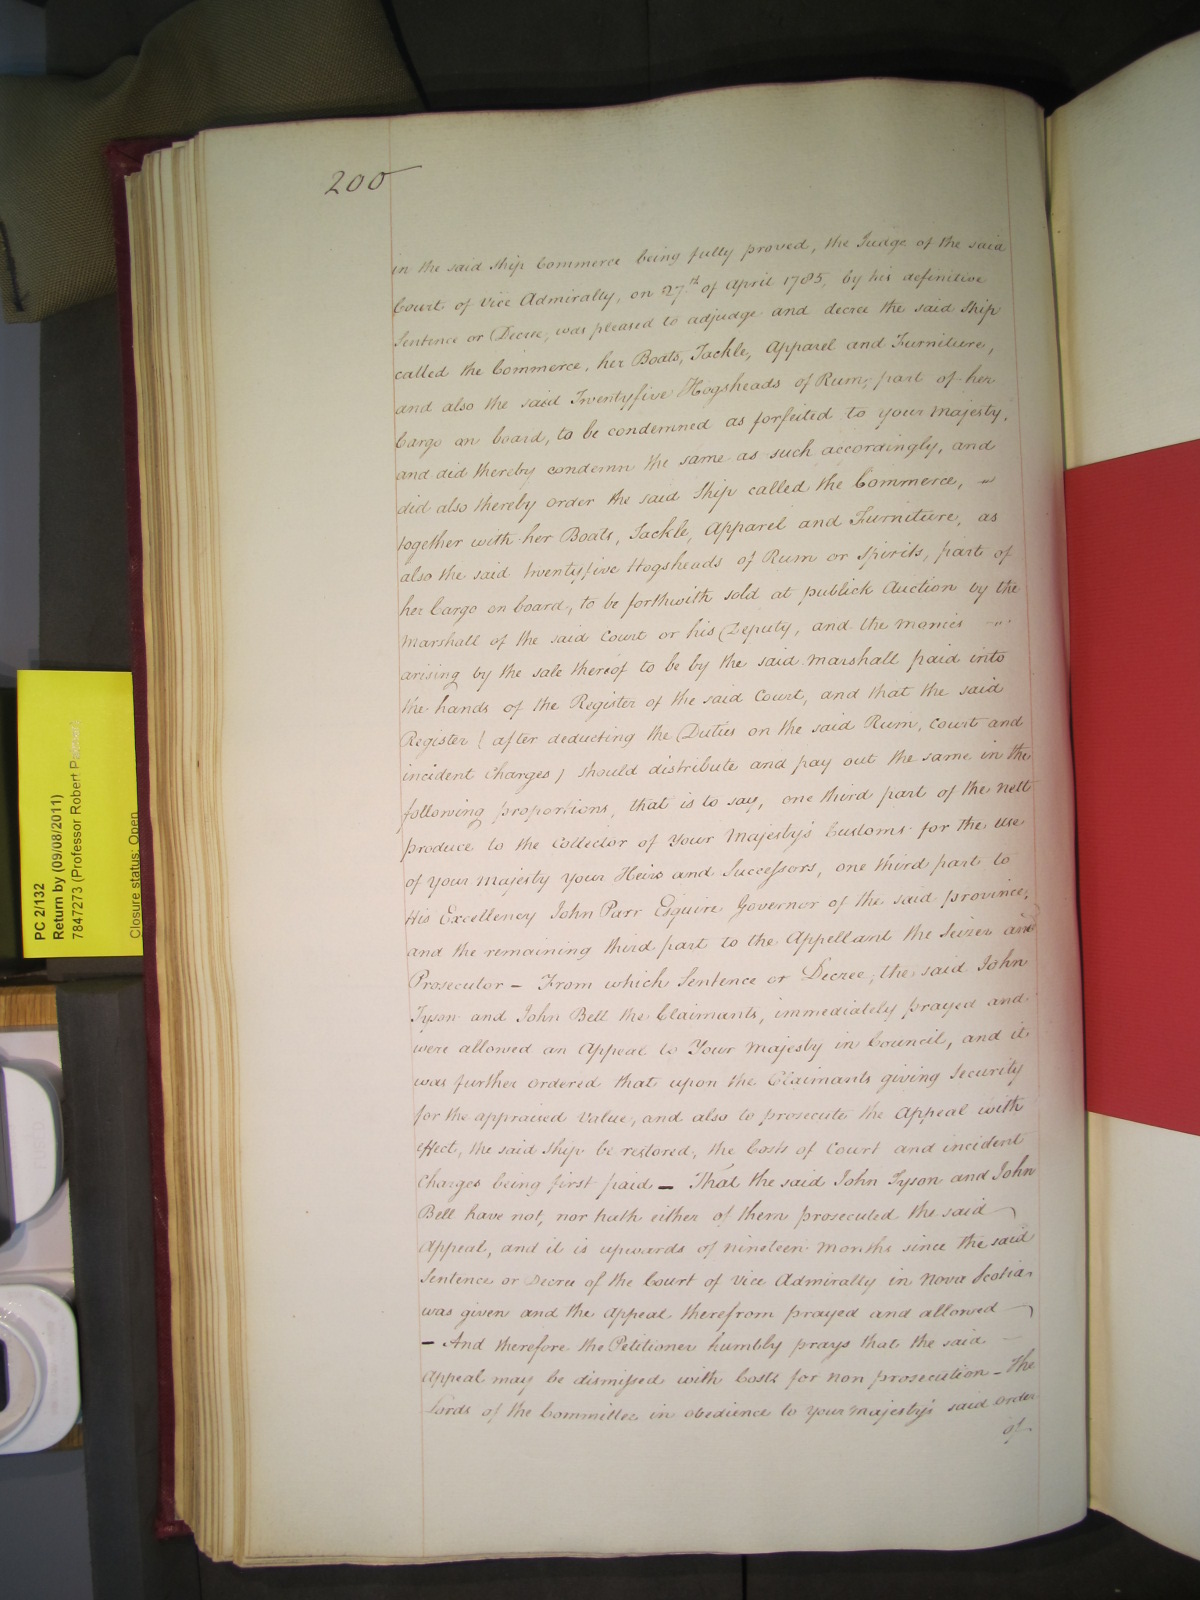 200
in the said Ship Commerce being fully proved, the Judge of the said
Court of Vice Admiralty, on 27th of April 1785, by his definitive
Sentence or Decree, was pleased to adjudge and decree the said Ship
called the Commerce, her Boats, Tackle, Apparel and Furniture,
and also the said Twentyfive Hogsheads of Rum, part of her
Cargo on board, to be condemned as forfeited to your Majesty,
and did thereby condemn the same as such accordingly, and
did also thereby order the said Ship called the Commerce,
together with her Boats, Tackle, Apparel and Furniture, as
also the said twentyfive Hogsheads of Rum or Spirits, part of
her Cargo on board, to be forthwith sold at publick Auction by the
Marshall of the said Court or his Deputy, and the monies
arising by the sale thereof to be by the said Marshall paid into
the hands of the Register of the said Court, and that the said
Register (after deducting the Duties on the said Rum, Court and
incident Charges) should distribute and pay out the same in the
following proportions, that is to say, one third part of the nett
produce to the Collector of Your Majesty's Customs for the use
of your Majesty Your Heirs and Successors, one third part to
His Excellency John Parr Esquire Governor of the said province,
and the remaining third part to the Appellant the Seizer and
Prosecutor – From which Sentence or Decree, the said John
Tyson and John Bell the Claimants, immediately prayed and
were allowed an Appeal to Your Majesty in Council, and it
was further ordered that upon the Claimants giving Security
for the appraised value, and also to prosecute the Appeal with
effect, the said Ship be restored, the Costs of Court and incident
Charges being first paid – That the said John Tyson and John
Bell have not, nor hath either of them prosecuted the said
Appeal, and it is upwards of nineteen Months since the said
Sentence or Decree of the Court of Vice Admiralty in Nova Scotia
was given and the Appeal therefrom prayed and allowed
– And therefore the Petitioner humbly prays that the said
Appeal may be dismissed with Costs for non prosecution – The
Lords of the Committee in obedience to Your Majesty's said Order
of
PC 2/132
Return by (09/08/2011)
7847273 (Professor Robert
Closure status: Open